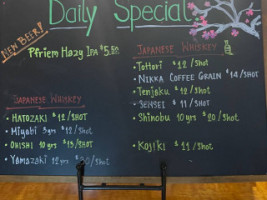 Daily Special
NEW BEER!
Pfriem Hazy IPA $5.50
JAPANESE WHISKEY
Tottori $12/SHOT
NIKKA COFFEE GRAIN $14/SHOT
Tenjaku $12/SHOT
SENSEI $11/SHOT
Shinobu 10 yrs $20/SHOT
Kosiki $11/SHOT
JAPANESE WHISKEY
HATOZAKI $12/SHOT
Miyabi 3 yrs $12/SHOT
OHISHI 10 yrs $13/SHOT
Yamazaki 12 yrs /SHOT